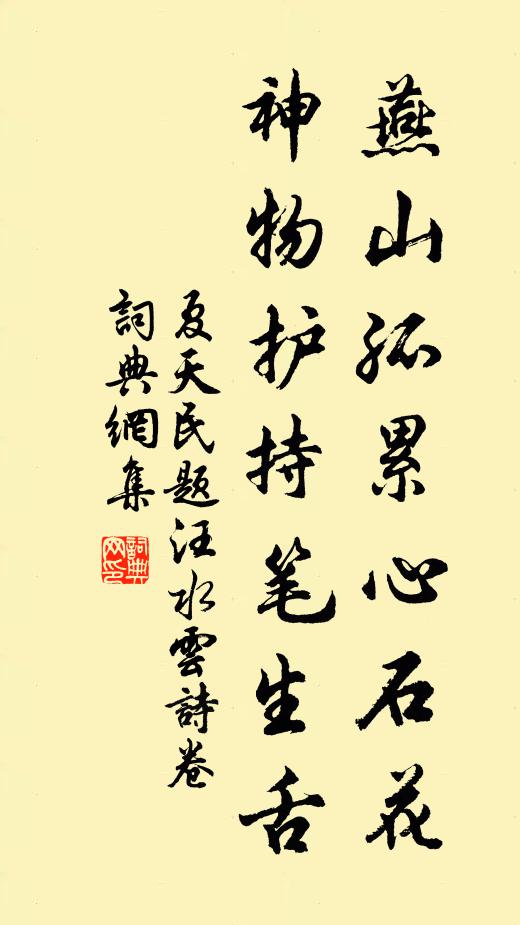 燕山孤累心石花
神物护持笔生舌
夏天民题汪水雲詩卷
詞典網集
詞典网印